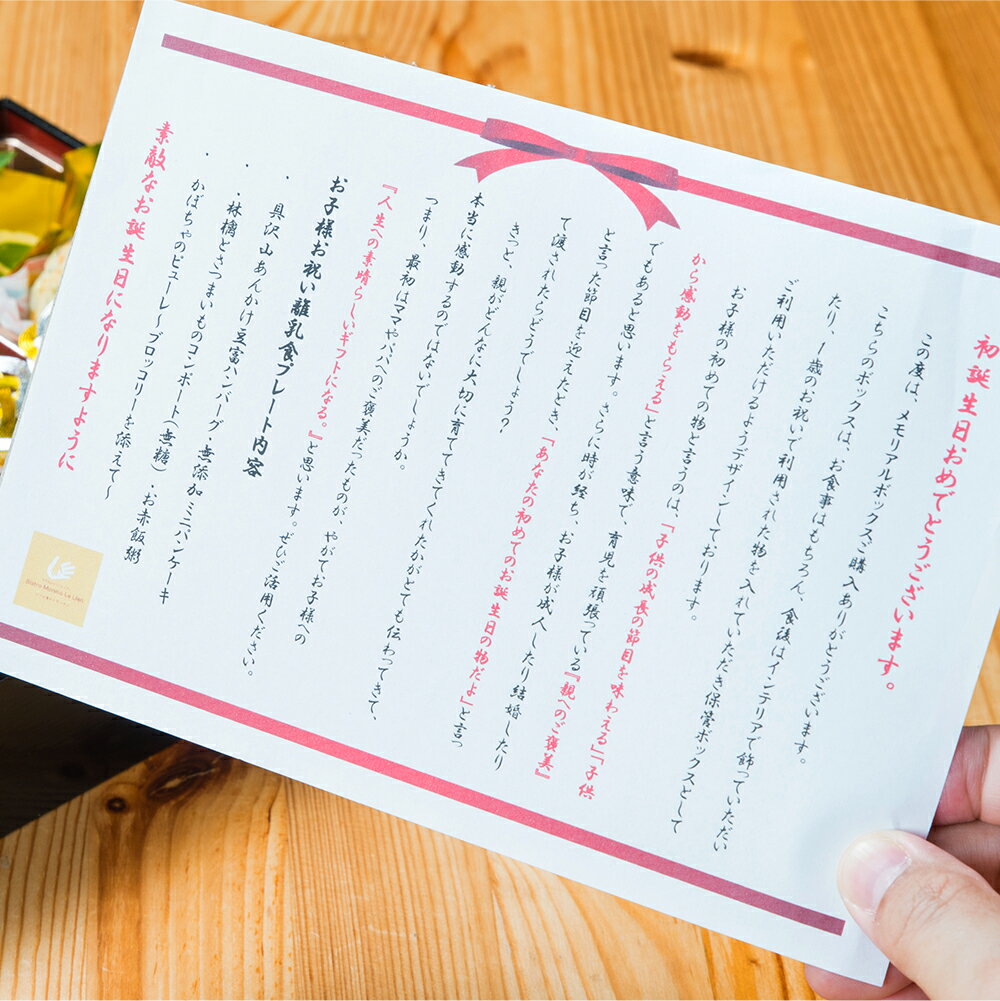 初誕生日おめでとうございます。
この度は、メモリアルボックスご購入ありがとうございます。
こちらのボックスは、お食事はもちろん、食後はインテリアで飾っていただい
たり、1歳のお祝いで利用された物を入れていただき保管ボックスとして
ご利用いただけるようデザインしております。
お子様の初めての物と言うのは、「子供の成長の節目を味わえる」「子供
から感動をもらえる」と言う意味で、育児を頑張っている『親へのご褒美』
でもあると思います。さらに時が経ち、お子様が成人したり結婚したり
と言った節目を迎えたとき、「あなたの初めてのお誕生日の物だよ」と言っ
て渡されたらどうでしょう?
きっと、親がどんなに大切に育ててきてくれたかがとても伝わってきて、
本当に感動するのではないでしょうか。
つまり、最初はママやパパへのご褒美だったものが、やがてお子様への
『人生への素晴らしいギフトになる。』と思います。ぜひご活用ください。
お子様お祝い離乳食プレート内容
・ 具沢山あんかけ豆富ハンバーグ・無添加ミニパンケーキ
・ ・林檎とさつまいものコンポート(無糖)・お赤飯粥
・ かぼちゃのピューレ～ブロッコリーを添えて～
素敵なお誕生日になりますように
Bistro Monsho Le Lien